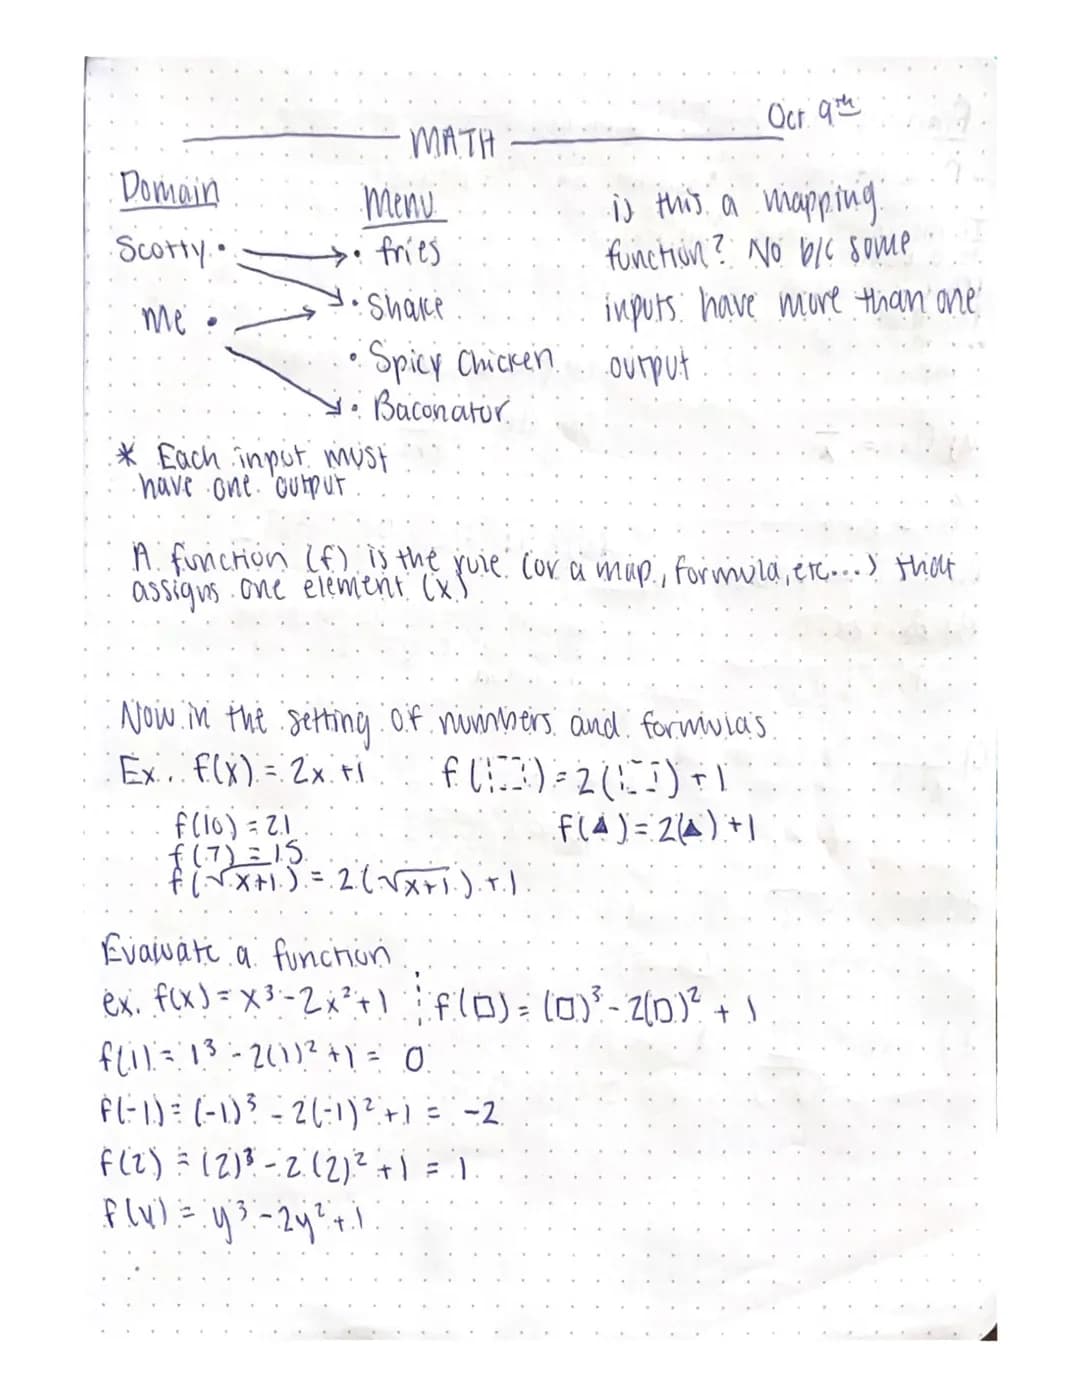 Oct 9th
MATH
Domain
Scotty •
Me •
Menu
• fries
• Shake
• Spicy Chicken
• Baconator
is this a mapping
function? No b/c some
inputs have more than one
output
* Each input must
have one output
A function (f) is the rule (or a map, formula, etc...) that
assigns one element (x)
Now in the setting of numbers and formulas
Ex. f(x) = 2x + 1 f(⬚) = 2(⬚) + 1
f(10) = 21 f(▲) = 2(▲) + 1
f(7) = 15
f(√x+1) = 2(√x+1) + 1
Evaluate a function
ex. f(x) = x³ - 2x² + 1 f(□) = (□)³ - 2(□)² + 1
f(1) = 1³ - 2(1)² + 1 = 0
f(-1) = (-1)³ - 2(-1)² + 1 = -2
f(2) = (2)³ - 2(2)² + 1 = 1
f(y) = y³ - 2y² + 1